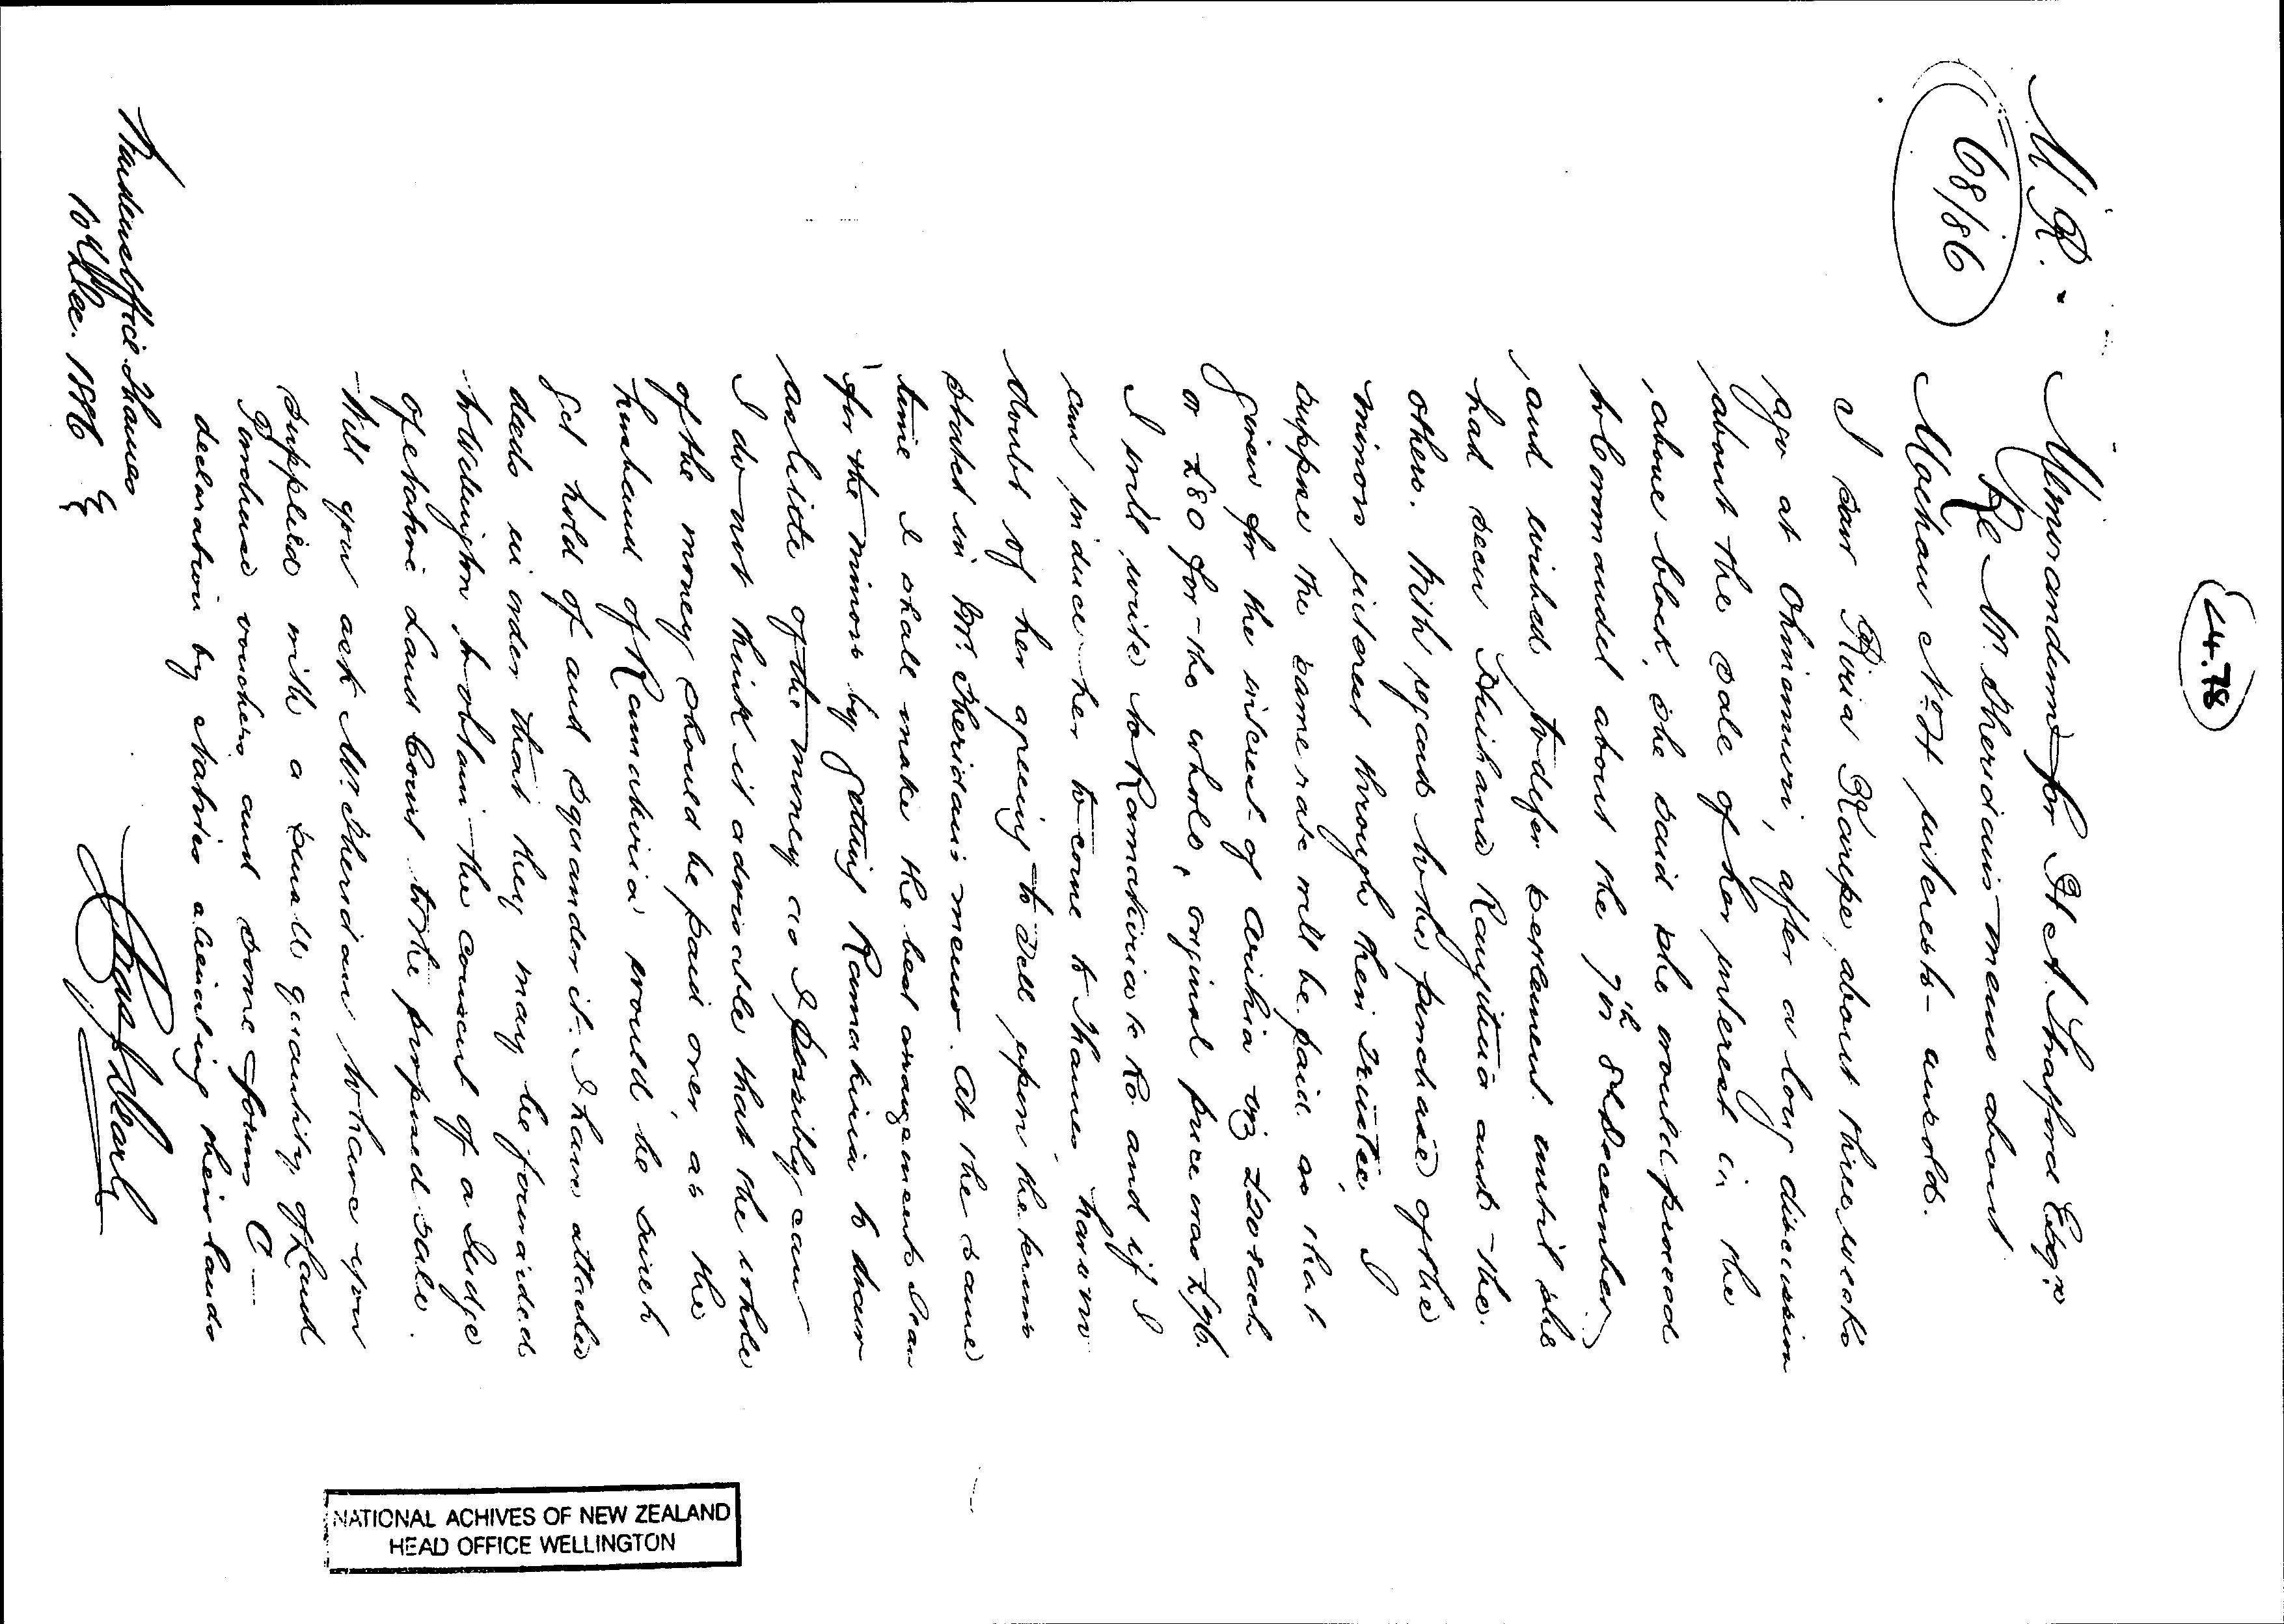 44.78
M.R.
68/86
Memorandum for H. A. Stratford Esqre
Re Mr. Sheridan's memo about
Moehau No. 4 interests unsold.
I saw Riria Karepe about three weeks
ago at Ohinemuri, after a long discussion
about the sale of her interest in the
above block, she said she would proceed
to Coromandel about the 7th or 8th December
and wished to defer settlement until she
had seen Rangituia and the
others. With regard to the purchase of the
minors interest through their Trustee, I
suppose the same rate will be paid as that
given for the interest of viz £20 each
or £80 for the whole, original price was £96.
I will write to Ramahiria to and if I
can induce her to come to Thames have no
doubt of her agreeing to sell upon the terms
stated in Mr. Sheridan's memo. At the same
time I shall make the best arrangements I can
for the minors by getting Ramahiria to draw
as little of the money as I possibly can
I do not think it advisable that the whole
of the money should be paid over, as the
husband of Ramahiria would be sure to
get hold of and squander it. I have attached
deeds in order that they may be forwarded
to Wellington to obtain the consent of a Judge
of Native Land Court to the proposed sale.
Will you ask Mr. Sheridan to have upon
supplied with a small quantity of Land
Purchase vouchers and some form C
declaration by Natives alienating their lands
Wardens Office Thames
10th Dec. 1886
NATIONAL ACHIVES OF NEW ZEALAND
HEAD OFFICE WELLINGTON